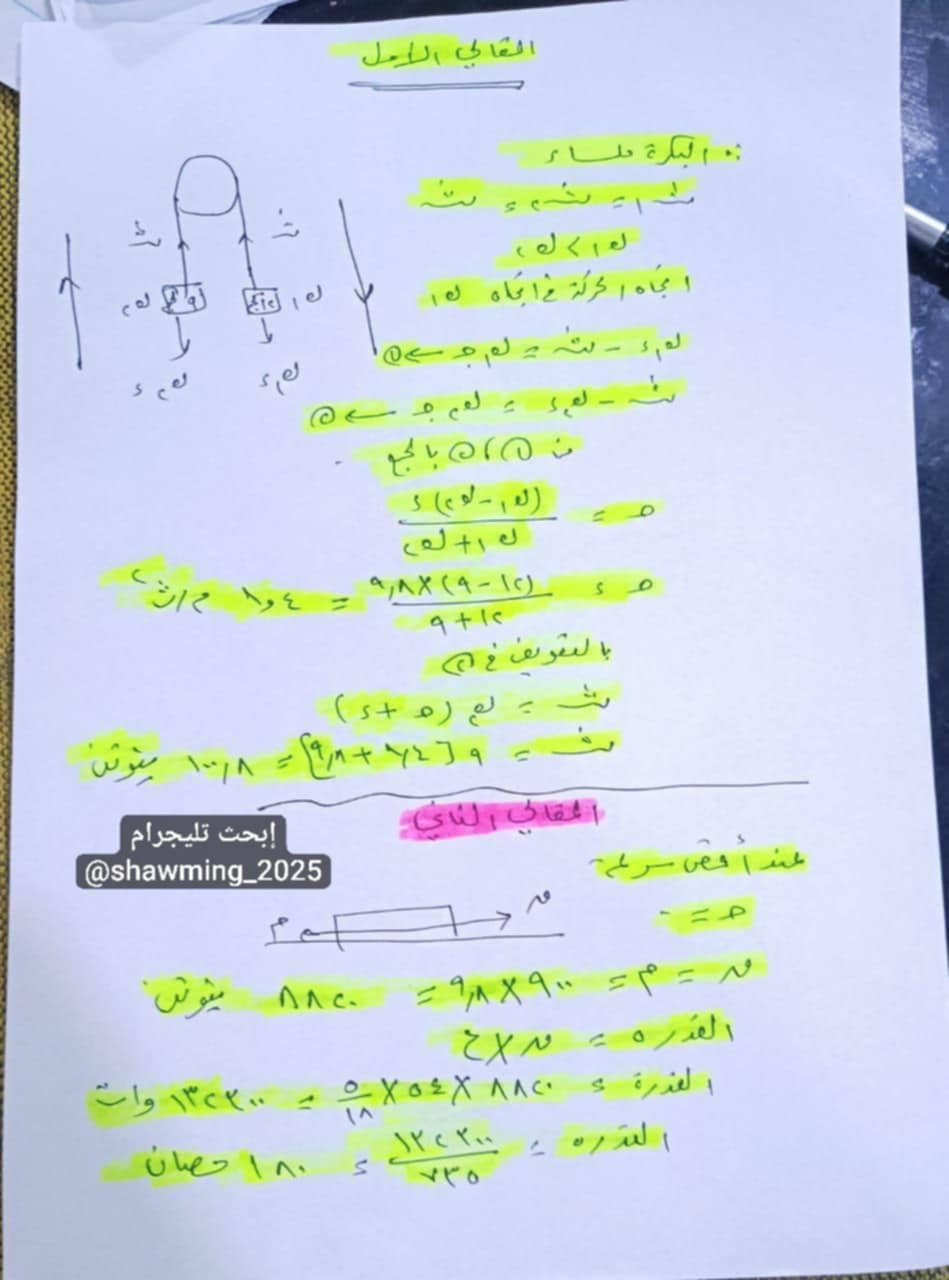 المقالي الاول
∵ البكرة ملساء
ش١ = ش٢ = ش
ك١ > ك٢
اتجاه الحركة في اتجاه ك١
ك١ء - ش = ك١ حـ ← ①
ش - ك٢ء = ك٢ حـ ← ②
من ① ، ② بالجمع
حـ = (ك١ - ك٢) ء / ك١ + ك٢
حـ = (١٢ - ٩) × ٩,٨ / ١٢ + ٩ = ١,٤ م/ث٢
بالتعويض في ②
ش = ك٢ (حـ + ء)
ش = ٩ [١,٤ + ٩,٨] = ١٠٠,٨ نيوتن
ش
ش
ك٢
٩كجم
١٢كجم
ك١
ك٢ء
ك١ء
المقالي الثاني
إبحث تليجرام
@shawming_2025
عند أقصى سرعة
حـ = ٠
م
ن
ن = م = ٩٠٠ × ٩,٨ = ٨٨٢٠ نيوتن
القدره = ن × ع
القدرة = ٨٨٢٠ × ٥٤ × ٥/١٨ = ١٣٢٣٠٠ وات
القدره = ١٣٢٣٠٠ / ٧٣٥ = ١٨٠ حصان